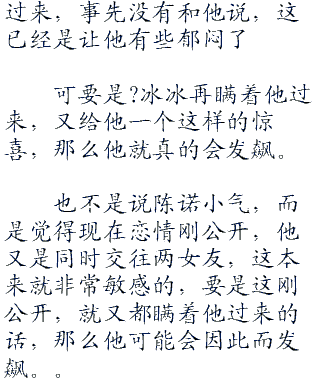 过来，事先没有和他说，这
已经是让他有些郁闷了
可要是?冰冰再瞒着他过
来，又给他一个这样的惊
喜，那么他就真的会发飙。
也不是说陈诺小气，而
是觉得现在恋情刚公开，他
又是同时交往两女友，这本
来就非常敏感的，要是这刚
公开，就又都瞒着他过来的
话，那么他可能会因此而发
飙。。